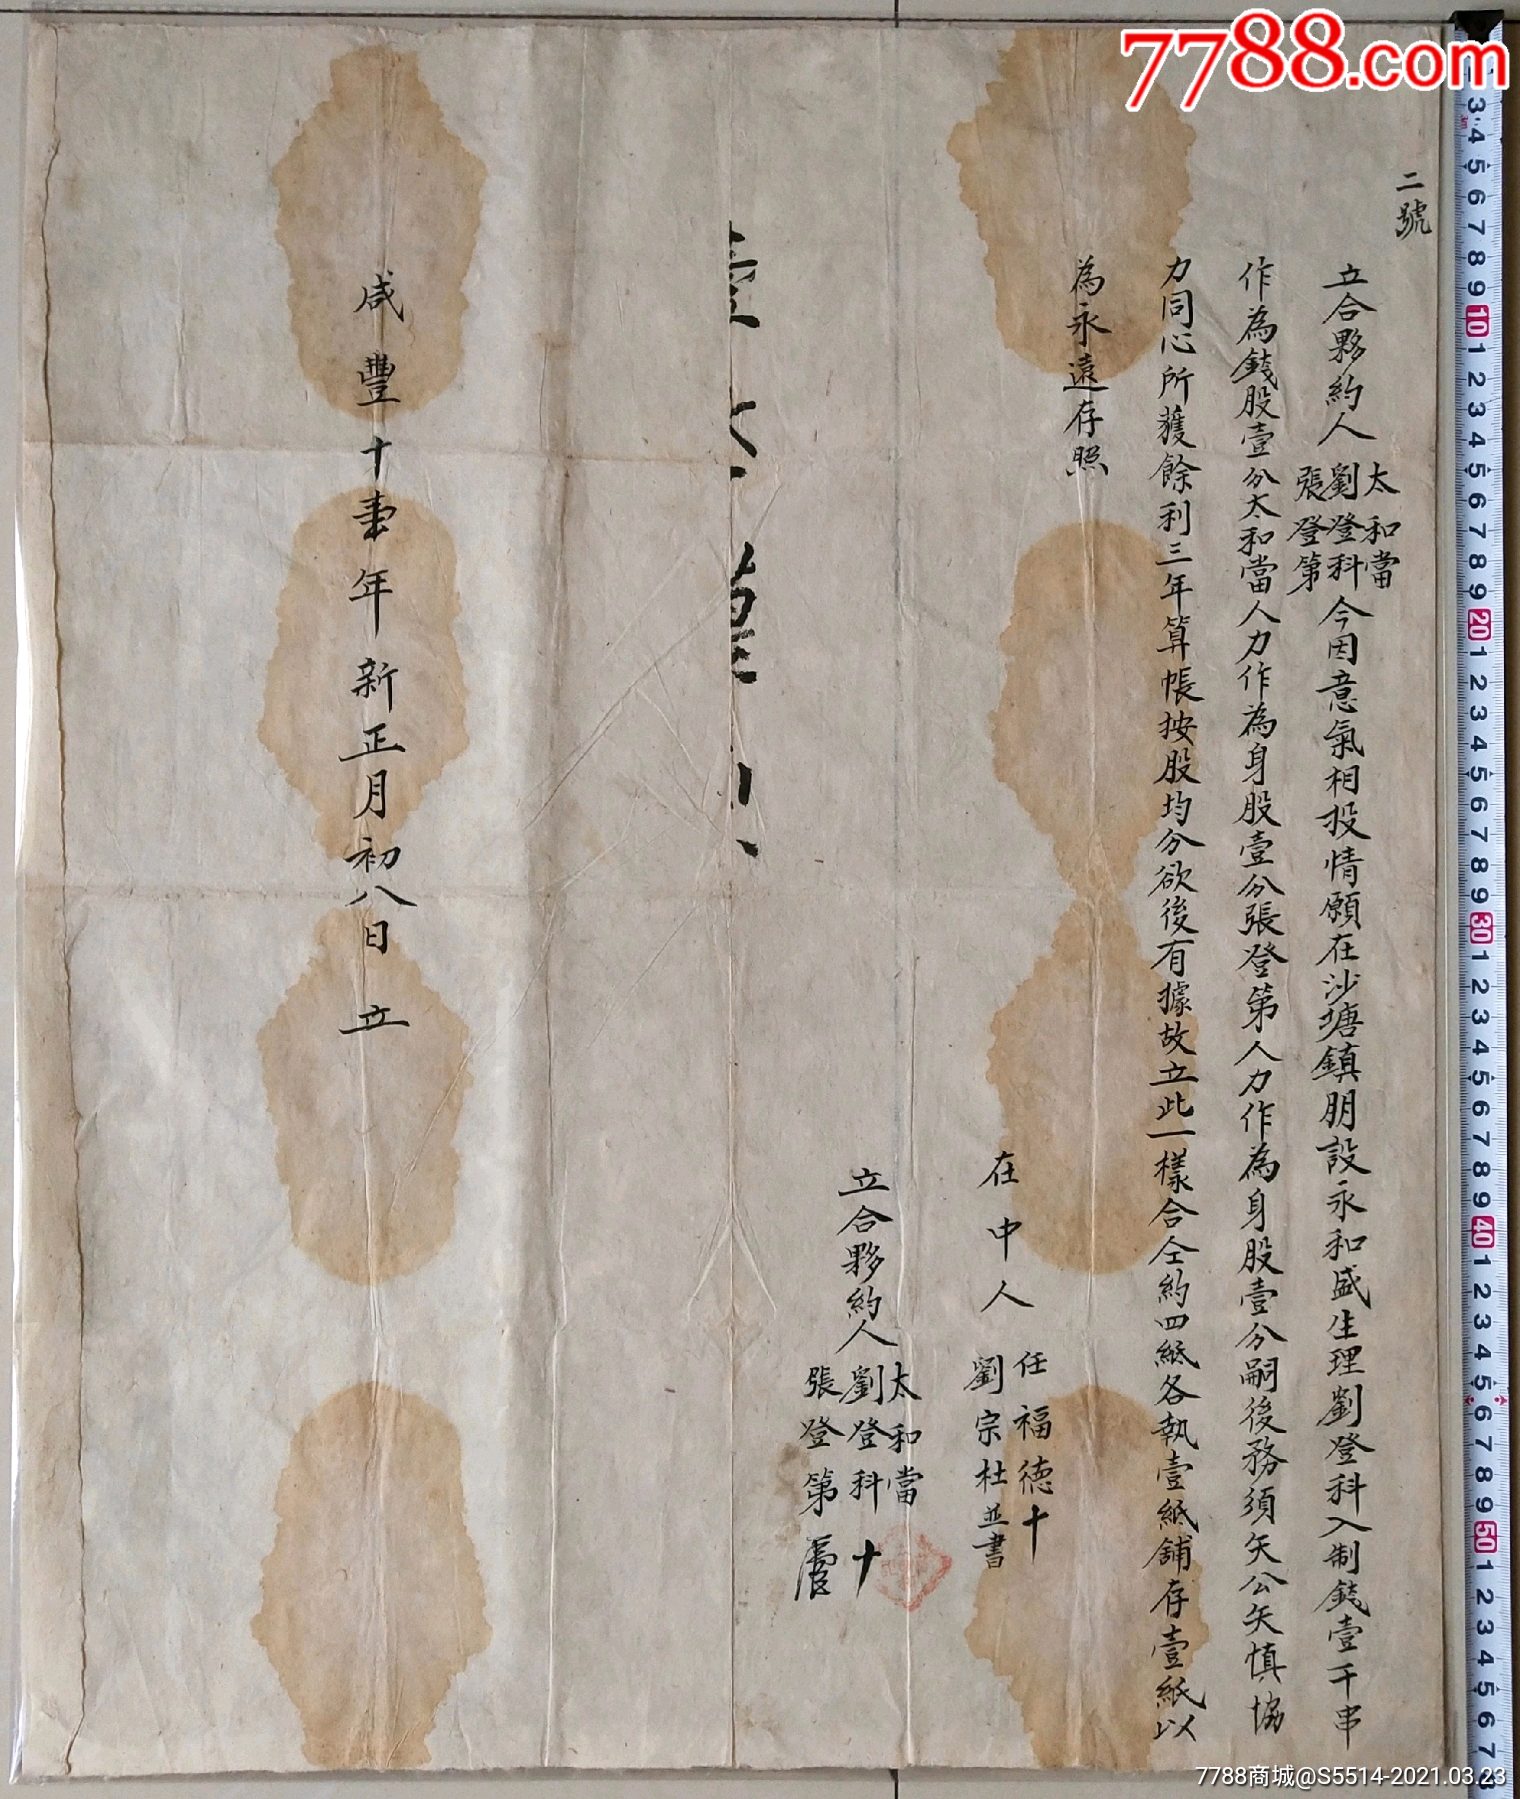 7788.com
二號
立合夥約人太和當劉登科張登第今因意氣相投情願在沙塘鎮朋設永和盛生理劉登科入制錢壹千串
作為錢股壹分太和當人力作為身股壹分張登第人力作為身股壹分嗣後務須矢公矢慎協
力同心所獲餘利三年算帳按股均分欲後有據故立此一樣合仝約四紙各執壹紙舖存壹紙以
為永遠存照
在中人
任福德十
劉宗杜並書
立合夥約人
太和當
劉登科十
張登第
咸豐十壹年新正月初八日立
7788商城@S5514-2021.03.23